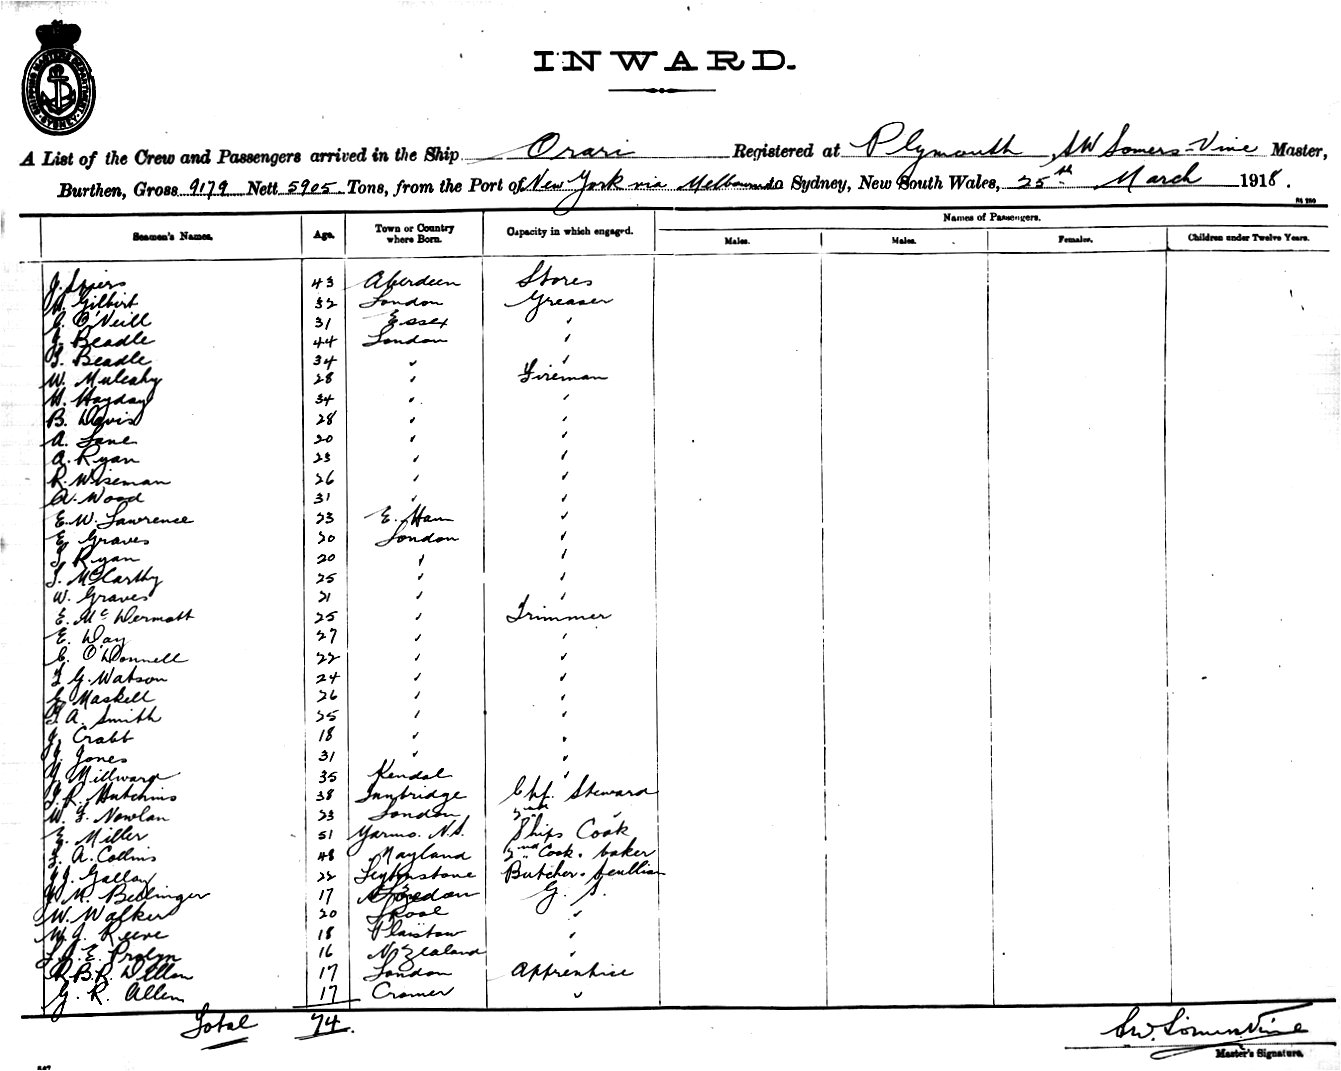 SHIPPING MASTER'S DEPARTMENT SYDNEY
INWARD.
A List of the Crew and Passengers arrived in the Ship Orari Registered at Plymouth, SW Somers-Vine Master,
Burthen, Gross 9179 Nett 5905 Tons, from the Port of New York via Melbourne to Sydney, New South Wales, 25th March 1918.
Names of Passengers.
Seamen's Names. Age. Town or Country where Born. Capacity in which engaged. Males. Males. Females. Children under Twelve Years.
J. Spiers 43 Aberdeen Stores
Gilbert 32 London Greaser
O'Neill 31 Essex "
J. Beadle 44 London "
Beadle 34 " "
W. Mulcahy 28 " Fireman
H. Hayday 34 " "
B. Davis 28 " "
A. Lane 20 " "
A. Ryan 23 " "
R. Wiseman 26 " "
A. Wood 31 " "
E. W. Lawrence 23 E. Ham "
E. Graves 20 London "
Ryan 20 " "
McCarthy 25 " "
W. Graves 21 " "
E. McDermott 25 " Trimmer
E. Day 27 " "
C. O'Donnell 22 " "
G. Watson 24 " "
Maskell 26 " "
A. Smith 25 " "
J. Crabb 18 " "
J. Jones 31 " "
Millward 35 Kendal "
R. Hutchins 38 Chf. Steward
W. Nowlan 23 London 2nd "
E. Miller 51 Yarmo. N.S. Ships Cook
A. Collins 48 Mayland 2nd Cook & baker
22 Leytonstone Butcher & Scullion
R. Bellinger 17 G. S.
W. Walker 20 "
W. J. Reeve 18 Plaistow "
E. 16 N Zealand "
R. B. R. Dillon 17 London Apprentice
G. R. Allen 17 Cromer "
Total 74.
SW. Somers Vine
Master's Signature.